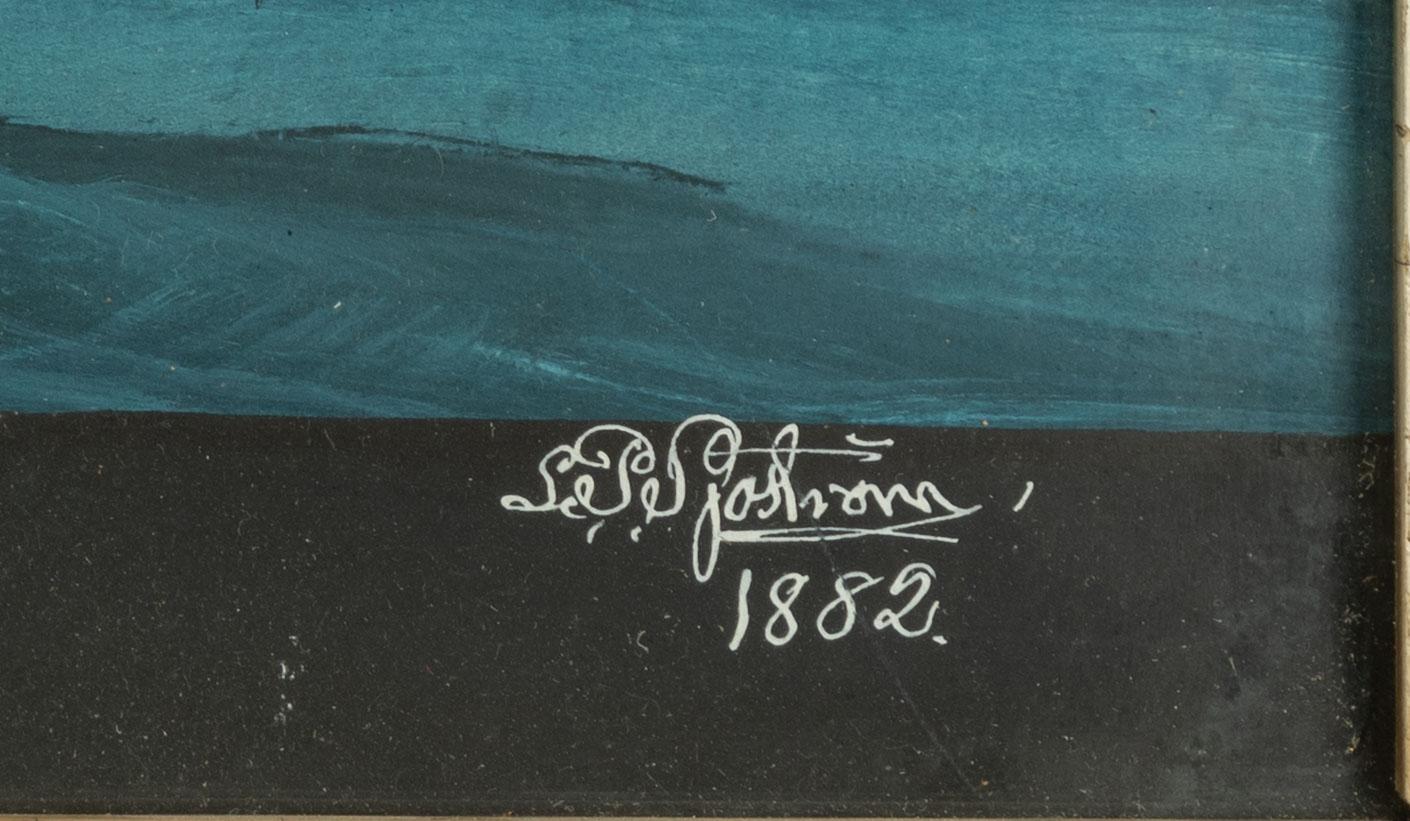 L. P. Sjöström
1882.